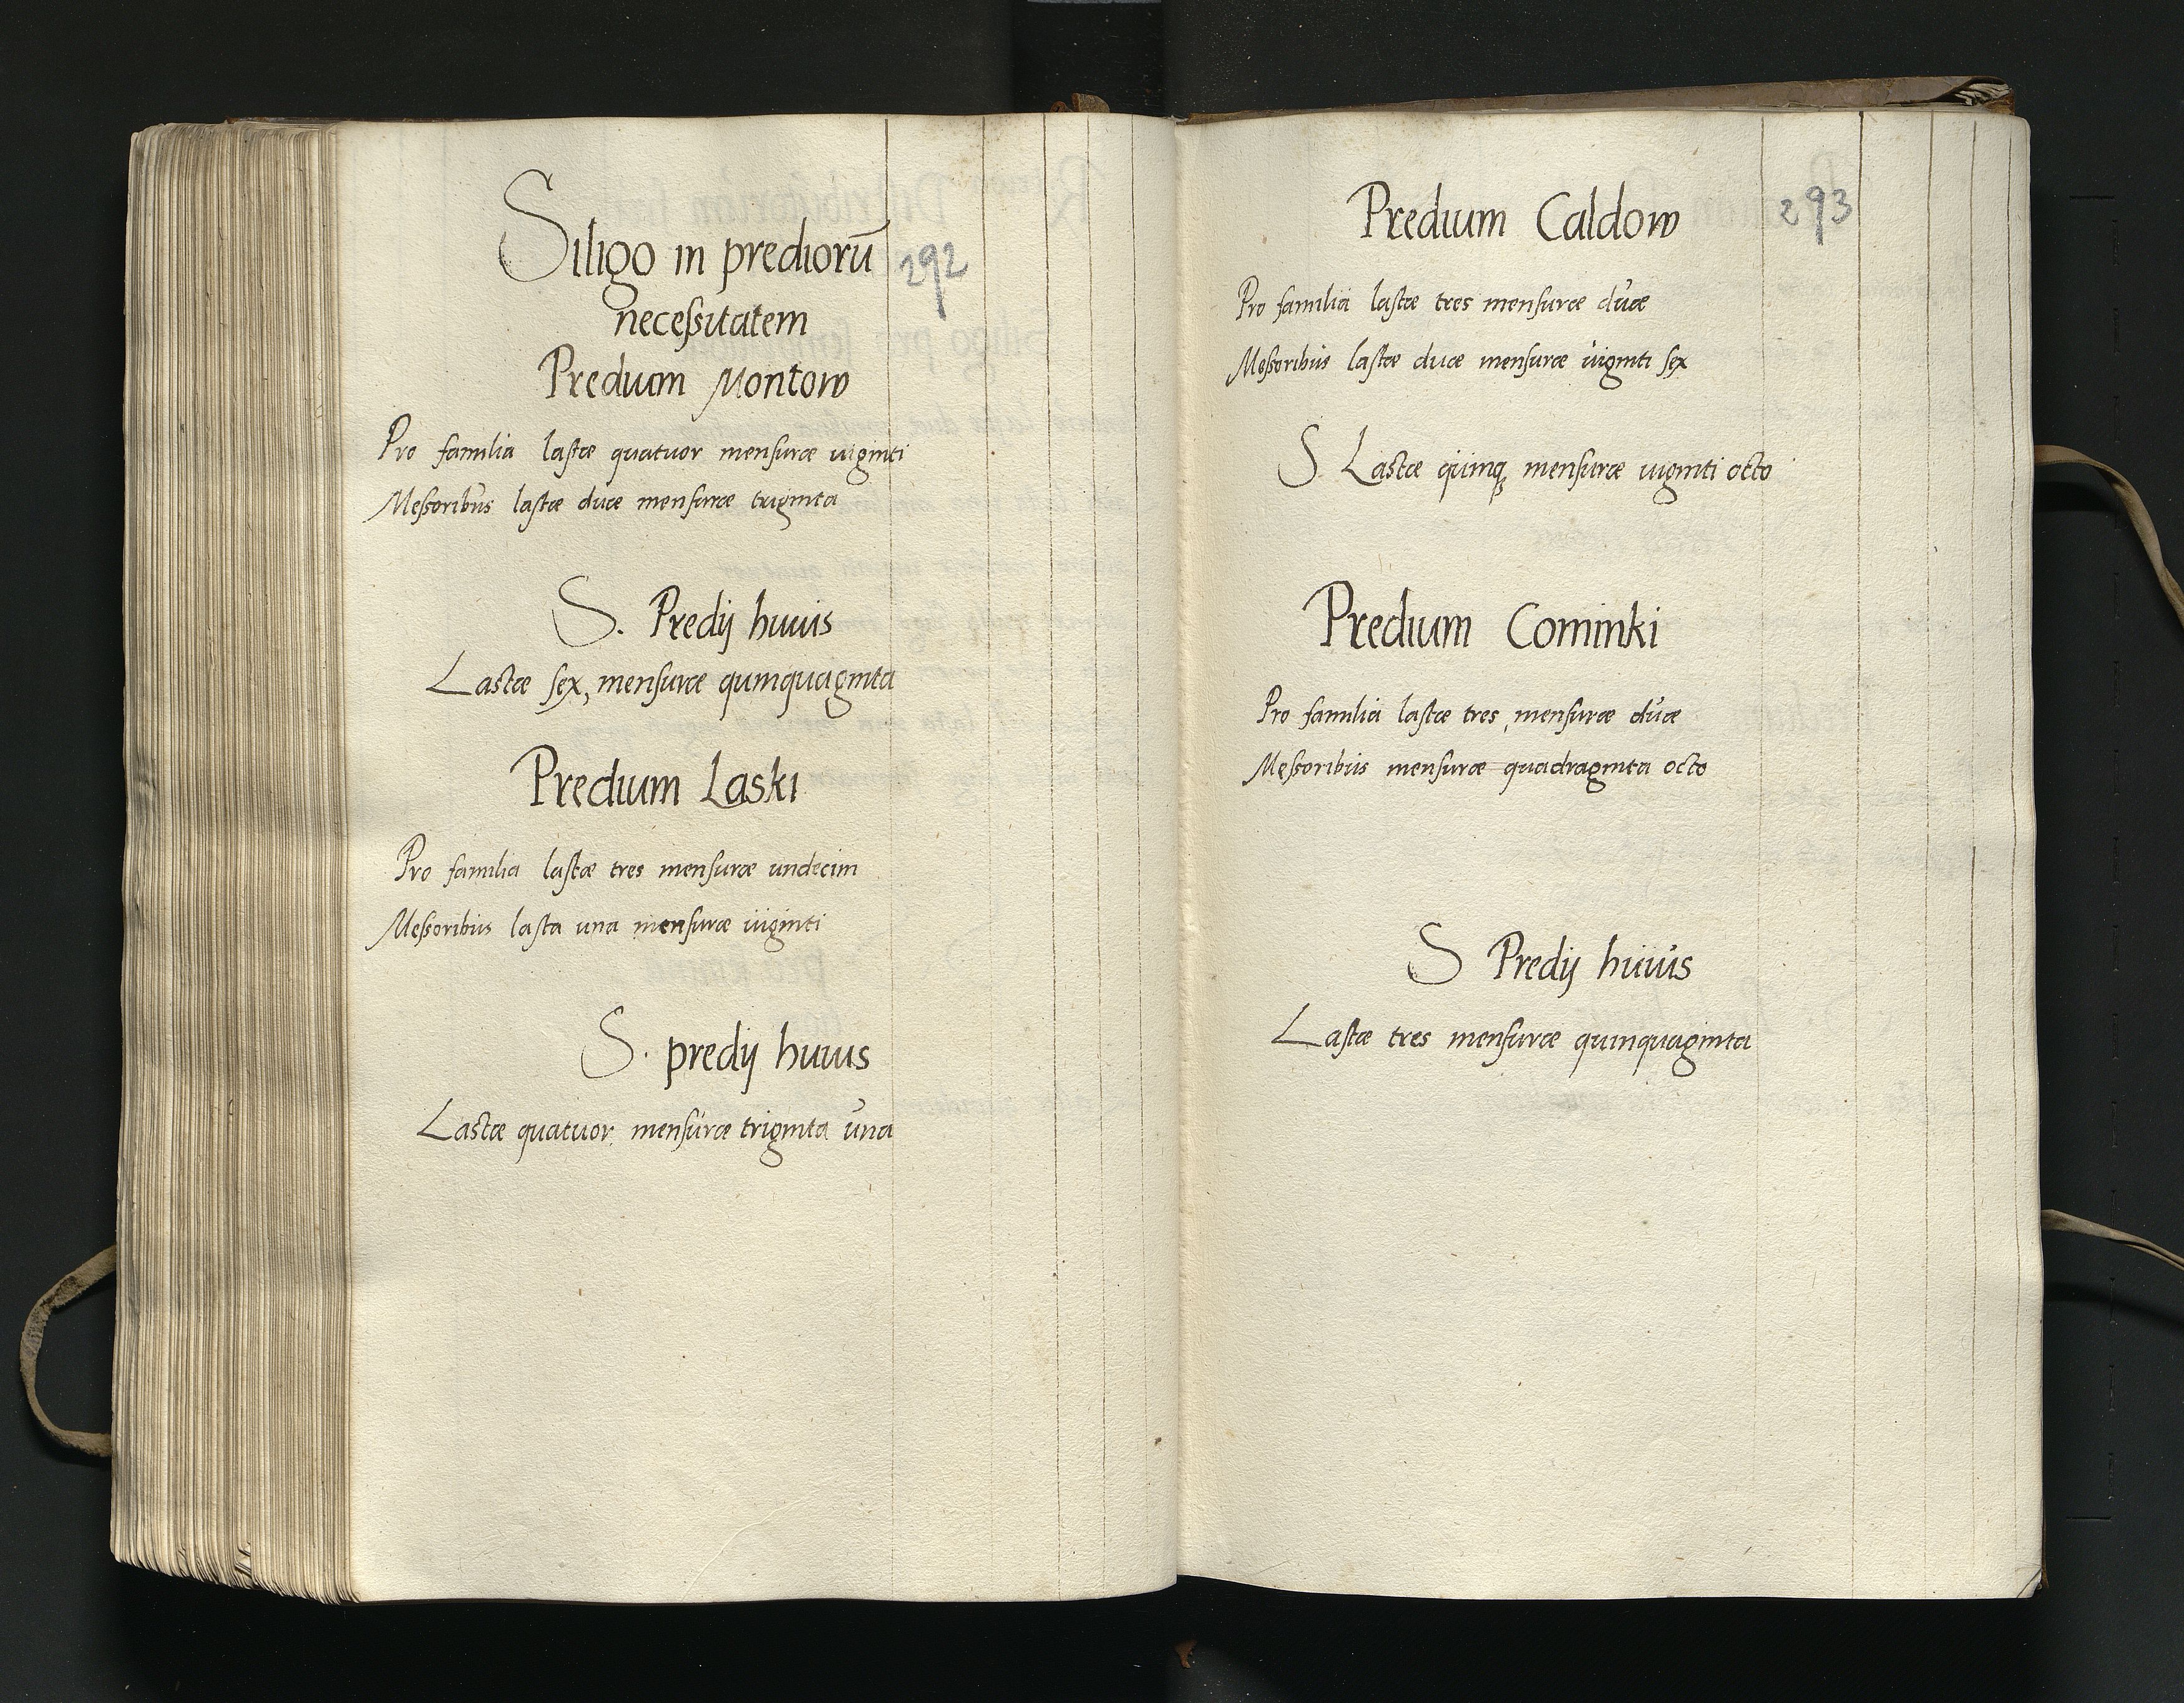 Siligo in prediorū
292
necessitatem
Predium Montow
Pro familia lastæ quatuor mensuræ uiginti
Messoribus lastæ duæ mensuræ triginta
S. Predij huius
Lastæ sex, mensuræ quinquaginta
Predium Laski
Pro familia lastæ tres mensuræ undecim
Messoribus lasta una mensuræ uiginti
S. predij huius
Lastæ quatuor, mensuræ triginta una
Predium Caldow
293
Pro familia lastæ tres mensuræ duæ
Messoribus lastæ duæ mensuræ uiginti sex
S. Lastæ quinq; mensuræ uiginti octo
Predium Cominki
Pro familia lastæ tres, mensuræ duæ
Messoribus mensuræ quadraginta octo
S Predij huius
Lastæ tres mensuræ quinquaginta